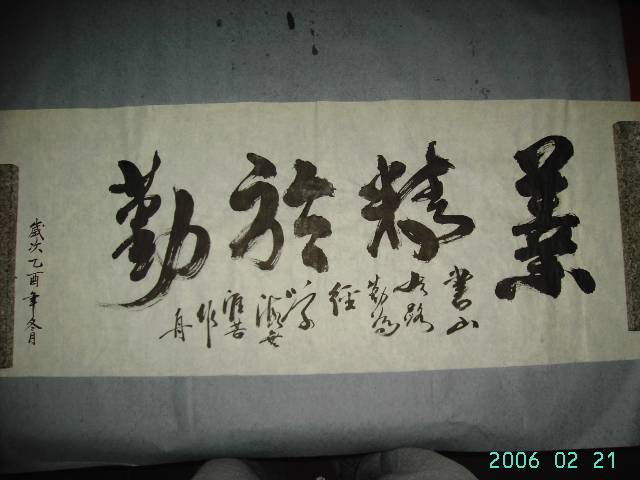 業精於勤
書山
有路
勤為
經
學
海無
涯苦
作
舟
歲次乙酉年冬月
2006 02 21